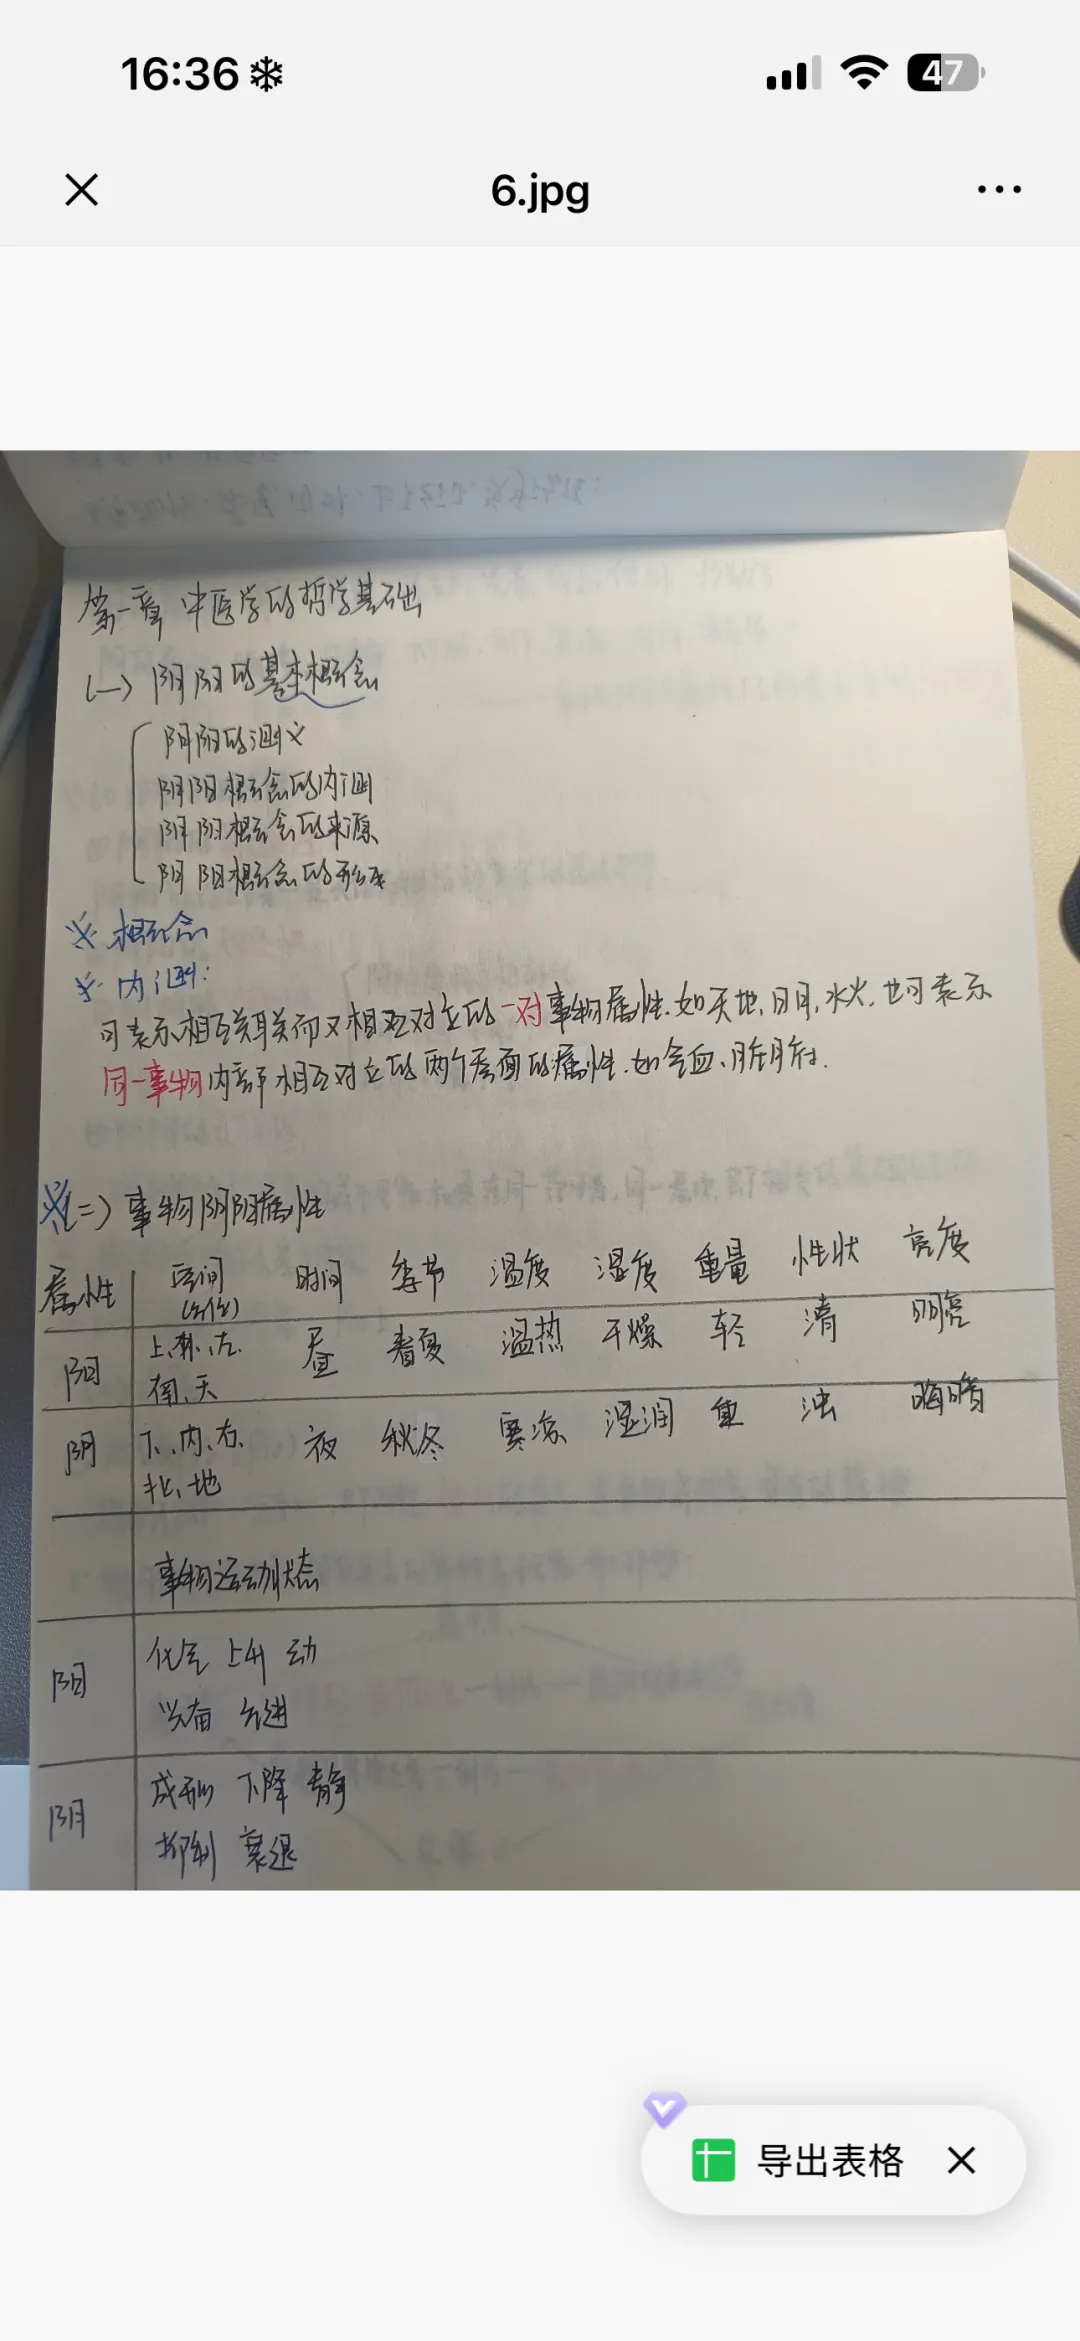 16:36
47
6.jpg
第一章 中医学的哲学基础
(一) 阴阳的基本概念
阴阳的涵义
阴阳概念的内涵
阴阳概念的来源
阴阳概念的形成
※ 概念
※ 内涵:
可表示相互关联而又相互对立的一对事物属性.如天地,日月,水火,也可表示
同一事物内部相互对立的两个层面的属性.如气血、脏腑.
※(二) 事物阴阳属性
属性 空间 时间 季节 温度 湿度 重量 性状 亮度
(方位)
阳 上、外、左、 昼 春夏 温热 干燥 轻 清 明亮
南、天
阴 下、内、右、 夜 秋冬 寒凉 湿润 重 浊 晦暗
北、地
事物运动状态
阳 化气 上升 动
兴奋 亢进
阴 成形 下降 静
抑制 衰退
导出表格